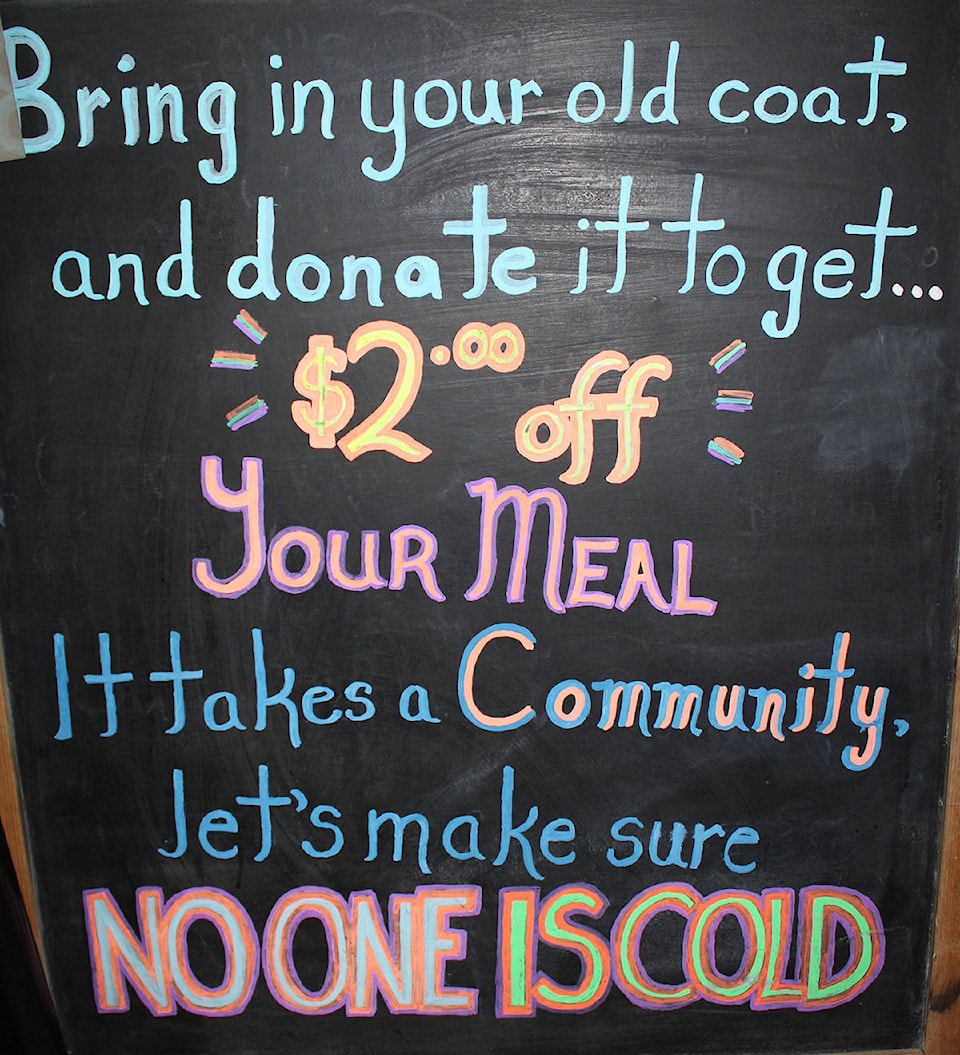 Bring in your old coat,
and donate it to get...
$2.00 off
YOUR MEAL
It takes a Community,
let's make sure
NO ONE IS COLD